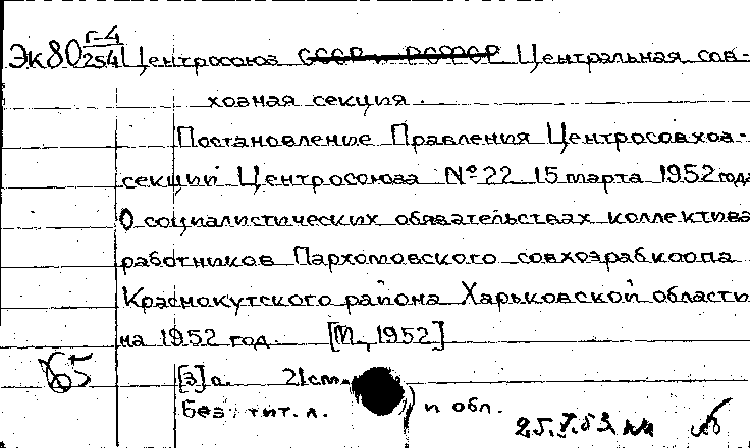 Эк80 г-4/254 Центросоюз СССР и РСФСР Центральная сов-
хозная секция.
Постановление Правления Центросовхоз-
секции Центросоюза № 22 15 марта 1952 года
О социалистических обязательствах коллектива
работников Пархомовского совхозрабкоопа
Краснокутского района Харьковской области
на 1952 год. [М., 1952]
[3] с. 21 см.
Без тит. л. и обл.